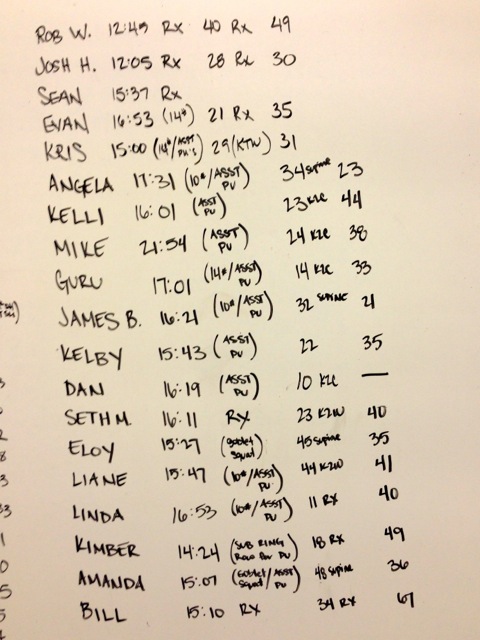 ROB W. 12:45 RX 40 RX 49
JOSH H. 12:05 RX 28 RX 30
SEAN 15:37 RX
EVAN 16:53 (14#) 21 RX 35
KRIS 15:00 (14#/ASST PU'S) 29 (KTW) 31
ANGELA 17:31 (10#/ASST PU) 34 SUPINE 23
KELLI 16:01 (ASST PU) 23 K2E 44
MIKE 21:54 (ASST PU) 24 K2E 38
GURU 17:01 (14#/ASST PU) 14 K2E 33
JAMES B. 16:21 (10#/ASST PU) 32 SUPINE 21
KELBY 15:43 (ASST PU) 22 35
DAN 16:19 (ASST PU) 10 K2E —
SETH M. 16:11 RX 23 K2W 40
ELOY 15:27 (Goblet Squat) 45 Supine 35
LIANE 15:47 (10#/ASST PU) 44 K2W 41
LINDA 16:53 (10#/ASST PU) 11 RX 40
KIMBER 14:24 (SUB RING Row For PU) 18 RX 49
AMANDA 15:07 (Goblet Squat/ASST PU) 48 Supine 36
BILL 15:10 RX 34 RX 67